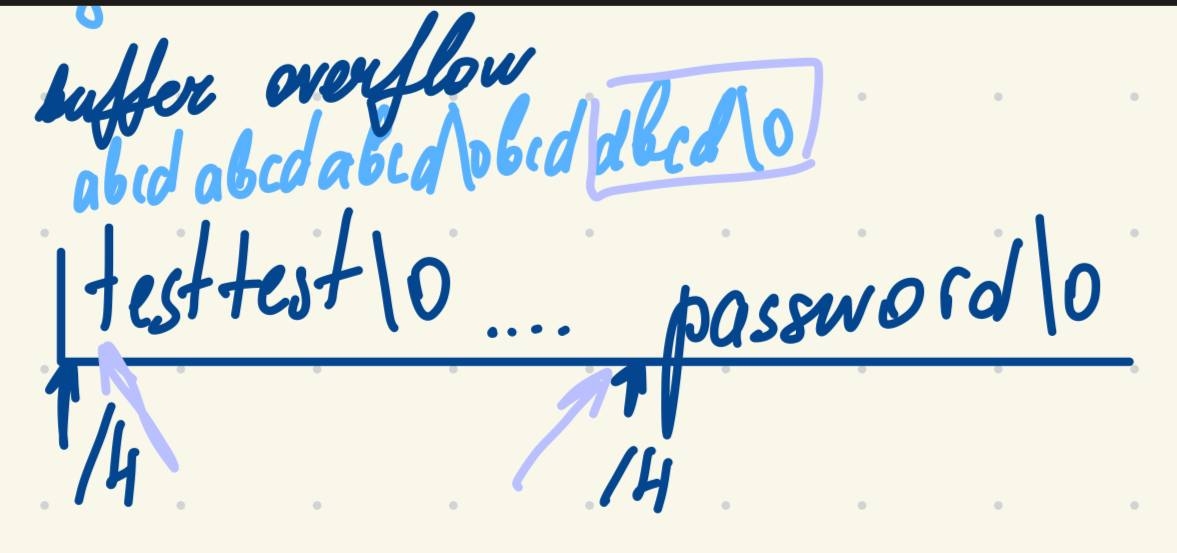 buffer overflow
abcd abcd abcd\0bcd abcd\0
testtest\0 .... password\0
/4 /4